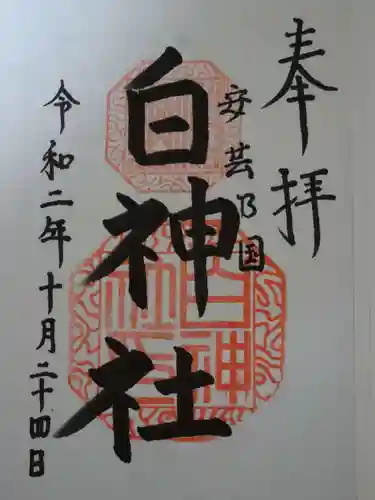 奉拝
安芸乃国
白神社
令和二年十月二十四日